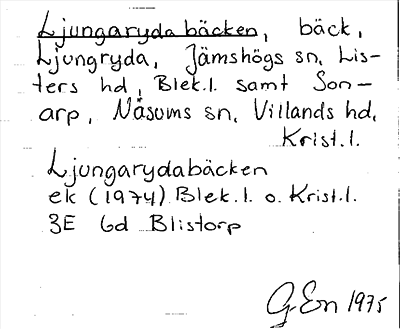 Ljungarydabäcken, bäck,
Ljungryda, Jämshögs sn, Lis-
ters hd, Blek.l. samt Son-
arp, Näsums sn, Villands hd,
Krist.l.
Ljungarydabäcken
ek (1974) Blek.l. o. Krist.l.
3E 6d Blistorp
G.En 1975